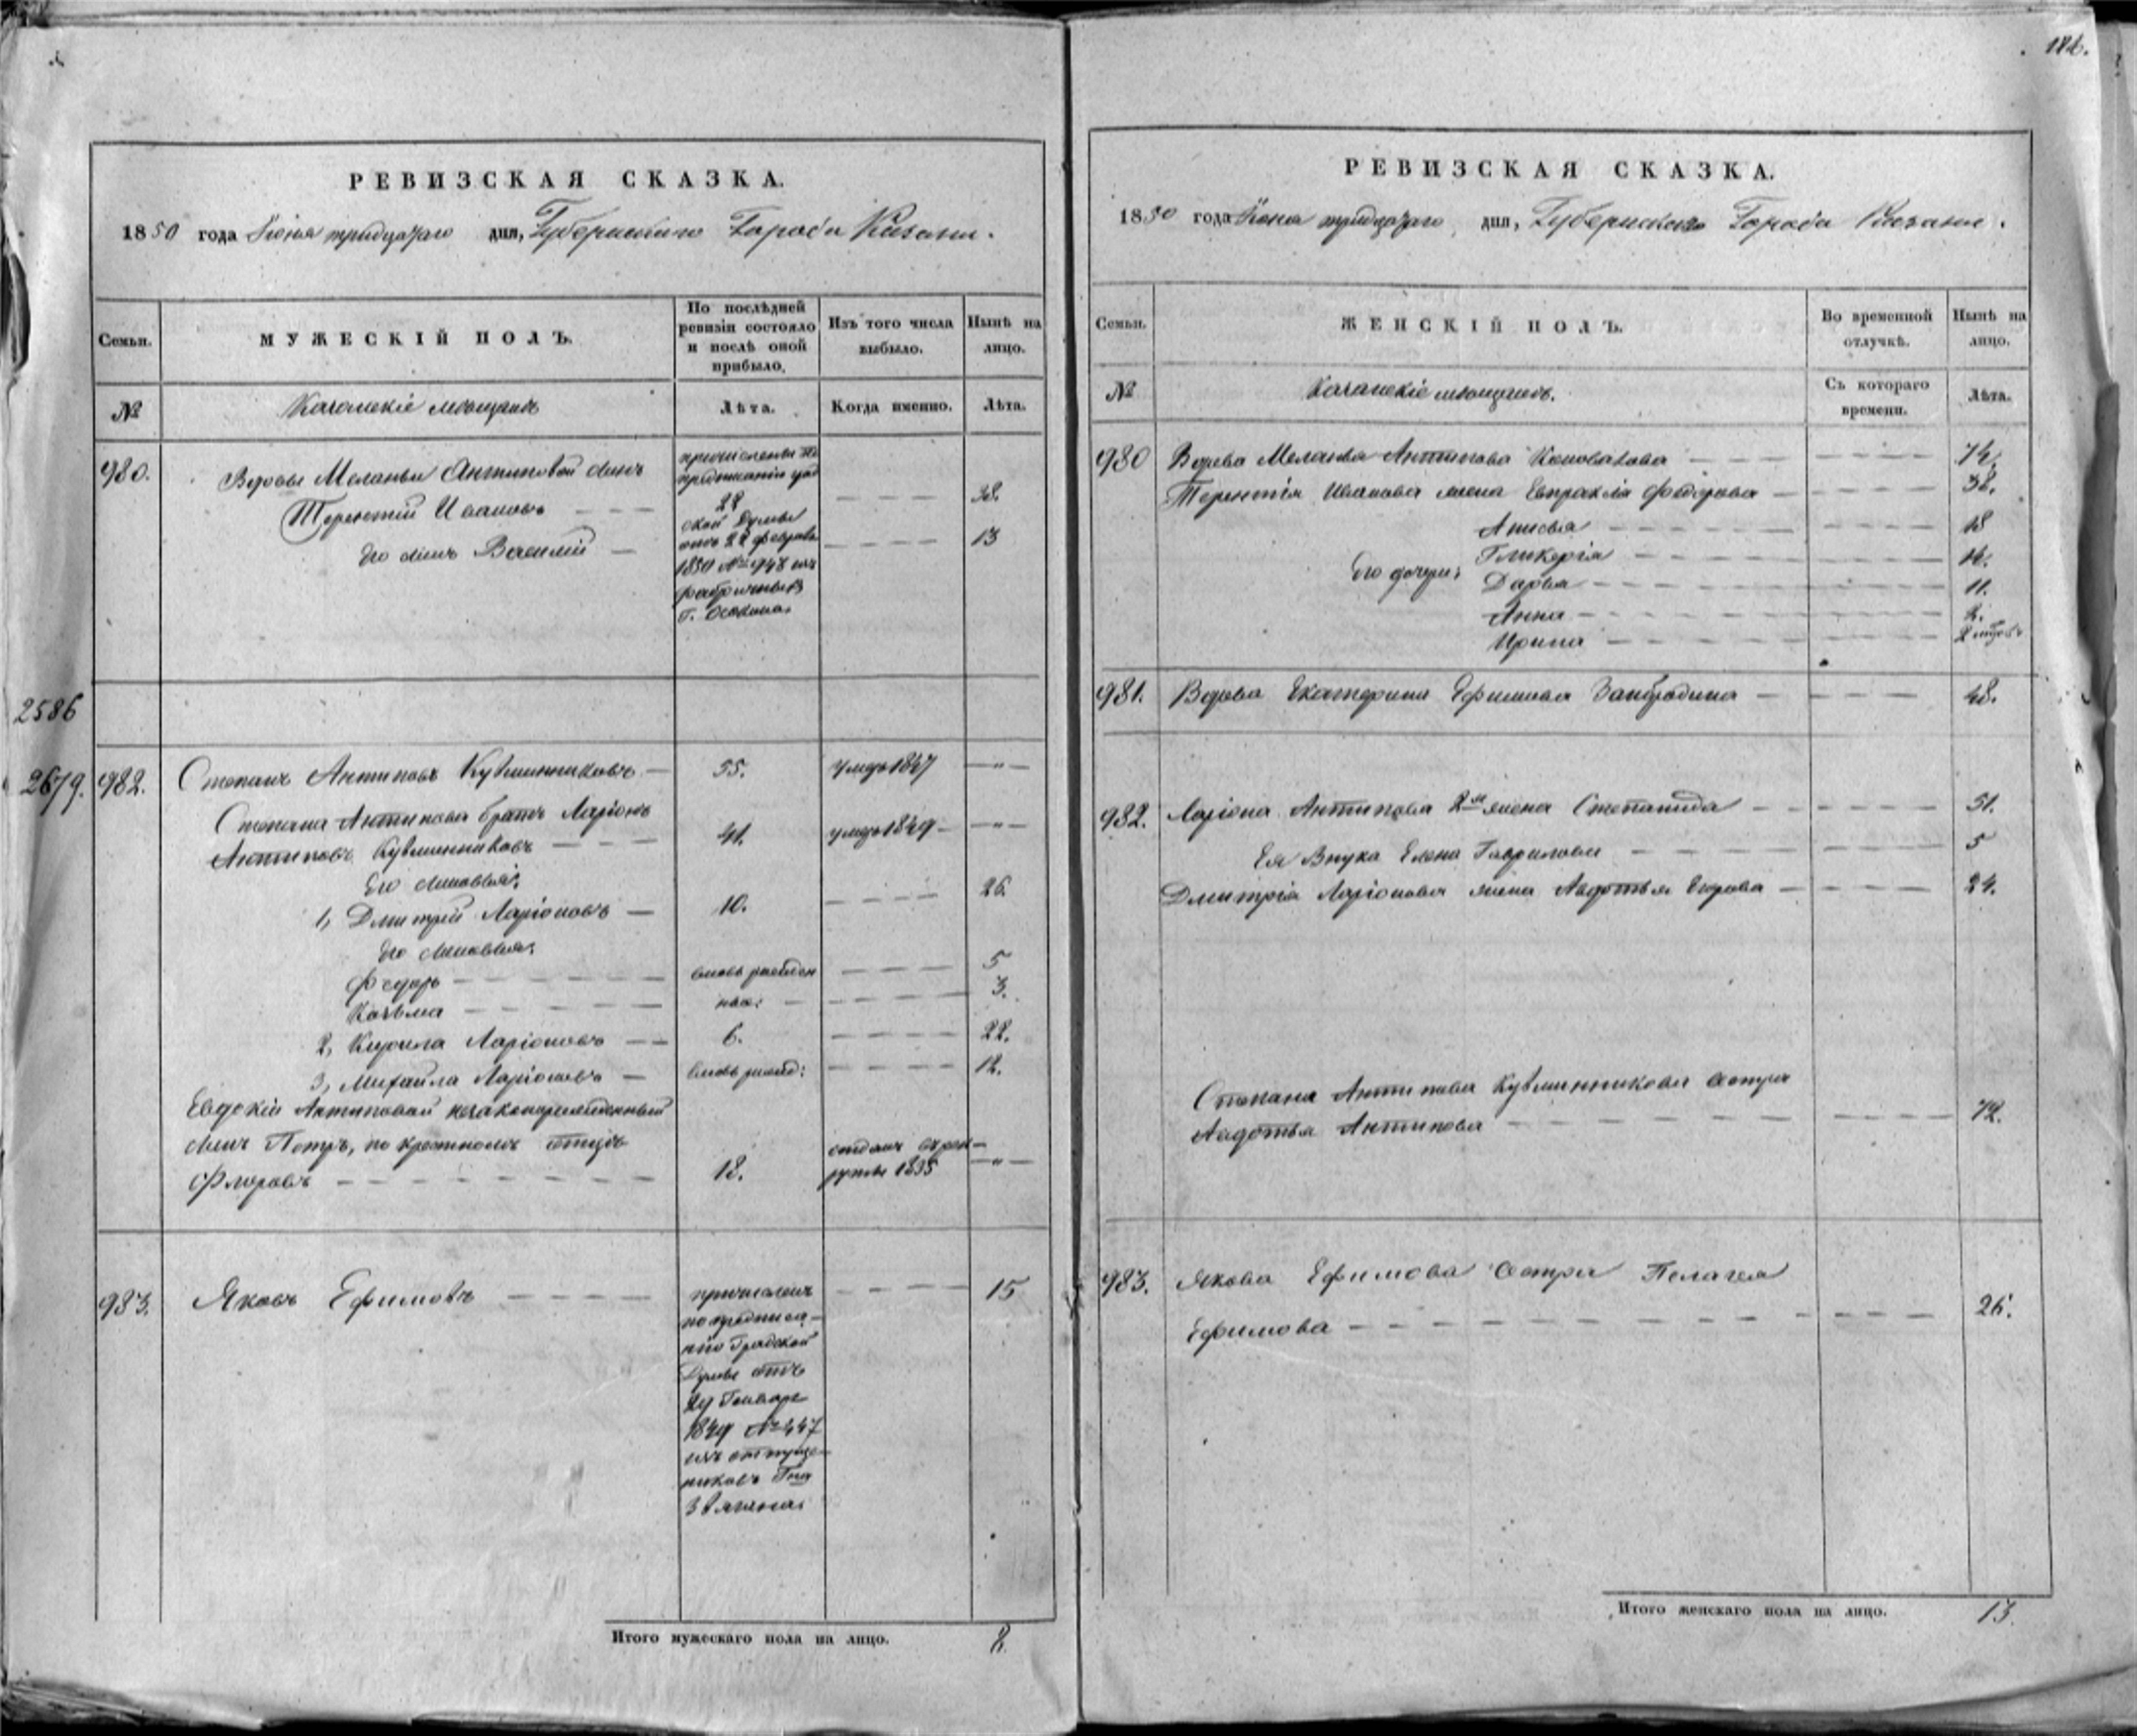 182.
РЕВИЗСКАЯ СКАЗКА.
1850 года Іюня тридцатаго дня, Губернскаго Города Казани.
Семьи.
МУЖЕСКІЙ ПОЛЪ.
По послѣдней ревизіи состояло и послѣ оной прибыло.
Изъ того числа выбыло.
Нынѣ на лицо.
№
Казанскіе мѣщане
Лѣта.
Когда именно.
Лѣта.
980.
Вдовы Меланьи Антиповой сынъ
Терентій Иванов
38.
Его сынъ Василій
13
причислены по
предписанію град
ской Думы
отъ 22 февраля
1850 № 948 изъ
фабричныхъ
Г. Осокина
2586
2679. 982.
Степанъ Антиповъ Кувшинниковъ
55.
умеръ 1847
Степана Антипова братъ Ларіонъ
Антиповъ Кувшинниковъ
41.
умеръ 1849
Его сыновья:
1, Дмитрій Ларіоновъ
10.
26.
Его сыновья:
Федоръ
вновь рожден
5
Козьма
ные:
3.
2, Кирила Ларіоновъ
6.
22.
3, Михайла Ларіоновъ
вновь рожд:
12.
Евдокіи Антиповой незаконорожденный
сынъ Петръ, по крестномъ отцѣ
Флоровъ
18.
отданъ въ рек
руты 1835
983.
Яковъ Ефимовъ
15
причисленъ
по предписа
нію Градской
Думы отъ
29 Генваря
1849 № 447
изъ отпуще
никовъ Гна
Итого мужескаго пола на лицо.
8.
РЕВИЗСКАЯ СКАЗКА.
1850 года Іюня тридцатаго дня, Губернскаго Города Казани.
Семьи.
ЖЕНСКІЙ ПОЛЪ.
Во временной отлучкѣ.
Нынѣ на лицо.
№
Казанскіе мѣщане.
Съ котораго времени.
Лѣта.
980
Вдова Меланья Антипова Коновалова
74.
Терентія Иванова жена Евпраксія Федорова
38.
Его дочери:
Анисья
18
Гликерія
14.
Дарья
11.
Анна
Ирина
981.
Вдова Екатерина Ефимова
48.
982.
Ларіона Антипова 2я жена Степанида
51.
Ея Внука Елена Гаврилова
5
Дмитрія Ларіонова жена Авдотья Егорова
24.
Степана Антипова Кувшинникова сестра
Авдотья Антипова
72.
983.
Якова Ефимова сестра Пелагея
Ефимова
26.
Итого женскаго пола на лицо.
13.